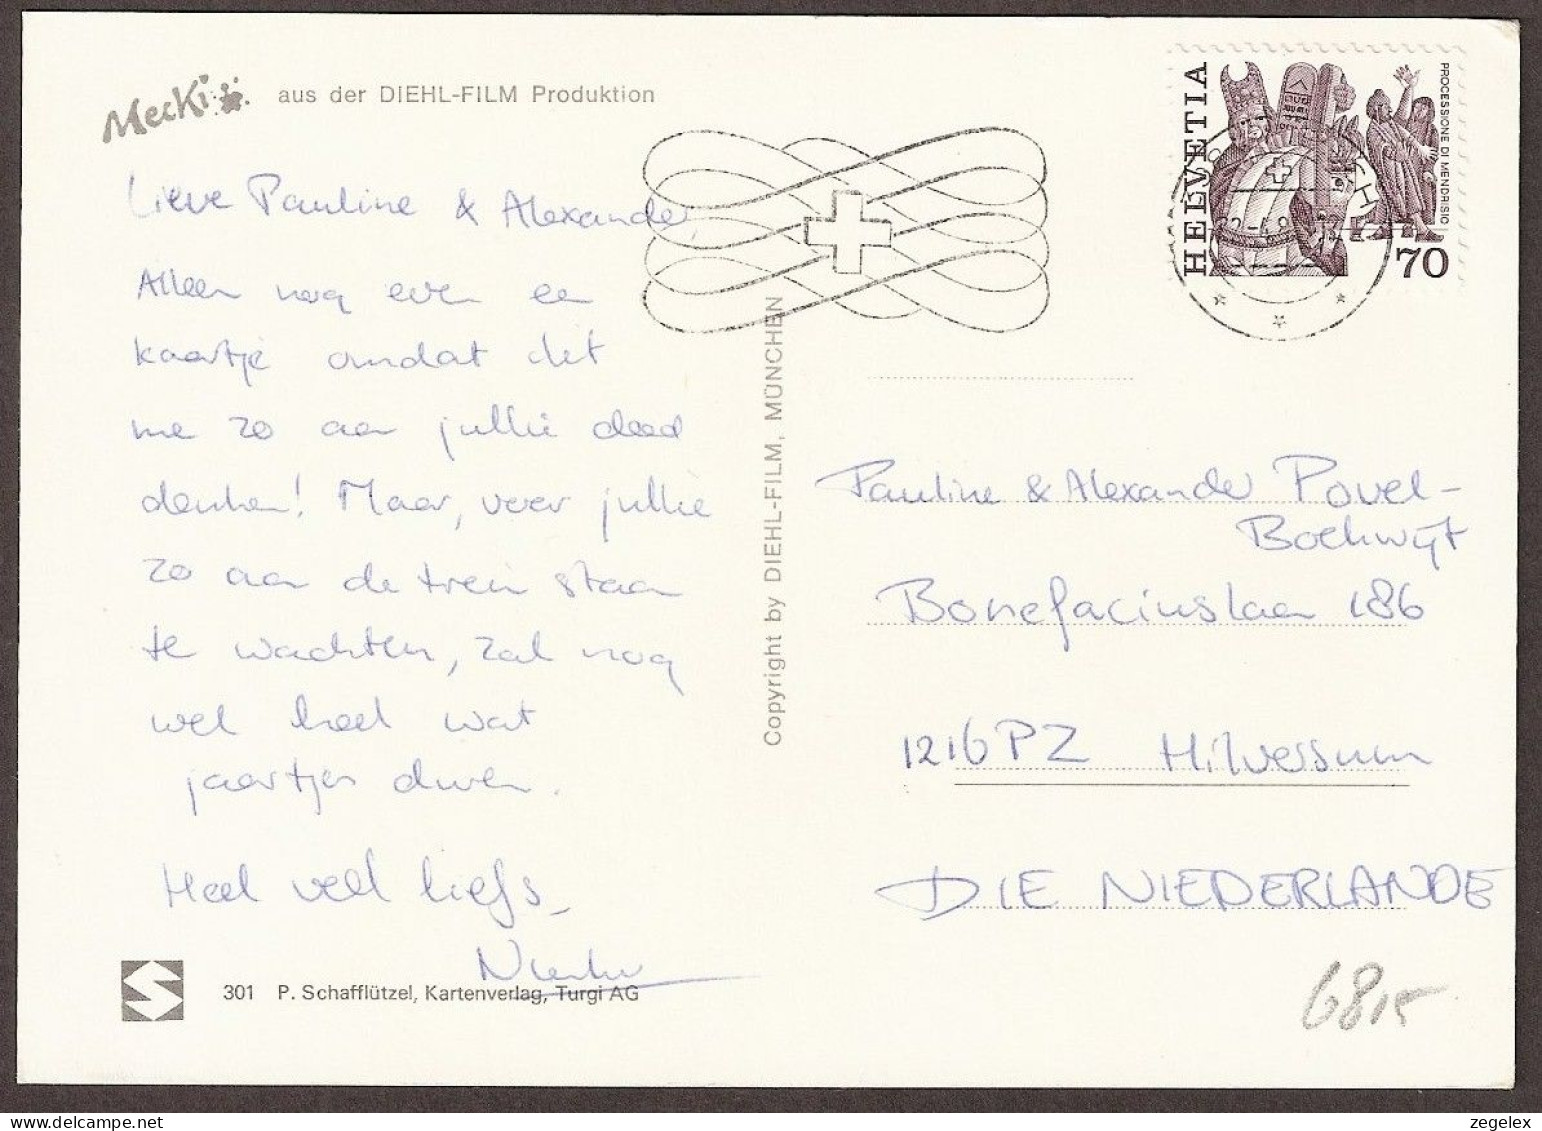 Mecki aus der DIEHL-FILM Produktion
Lieve Pauline & Alexander
Alleen nog even een
kaartje omdat dit
me zo aan jullie deed
denken! Maar, voor jullie
zo aan de trein staan
te wachten, zal nog
wel heel wat
jaartjes duren.
Heel veel liefs,
301 P. Schafflützel, Kartenverlag, Turgi AG
Copyright by DIEHL-FILM, MÜNCHEN
HELVETIA
PROCESSIONE DI MENDRISIO
70
Pauline & Alexander Povel-
Boekwijt
Bonefaciuslaan 186
1216 PZ Hilversum
DIE NIEDERLANDE
6815
zegelex
delcampe.net